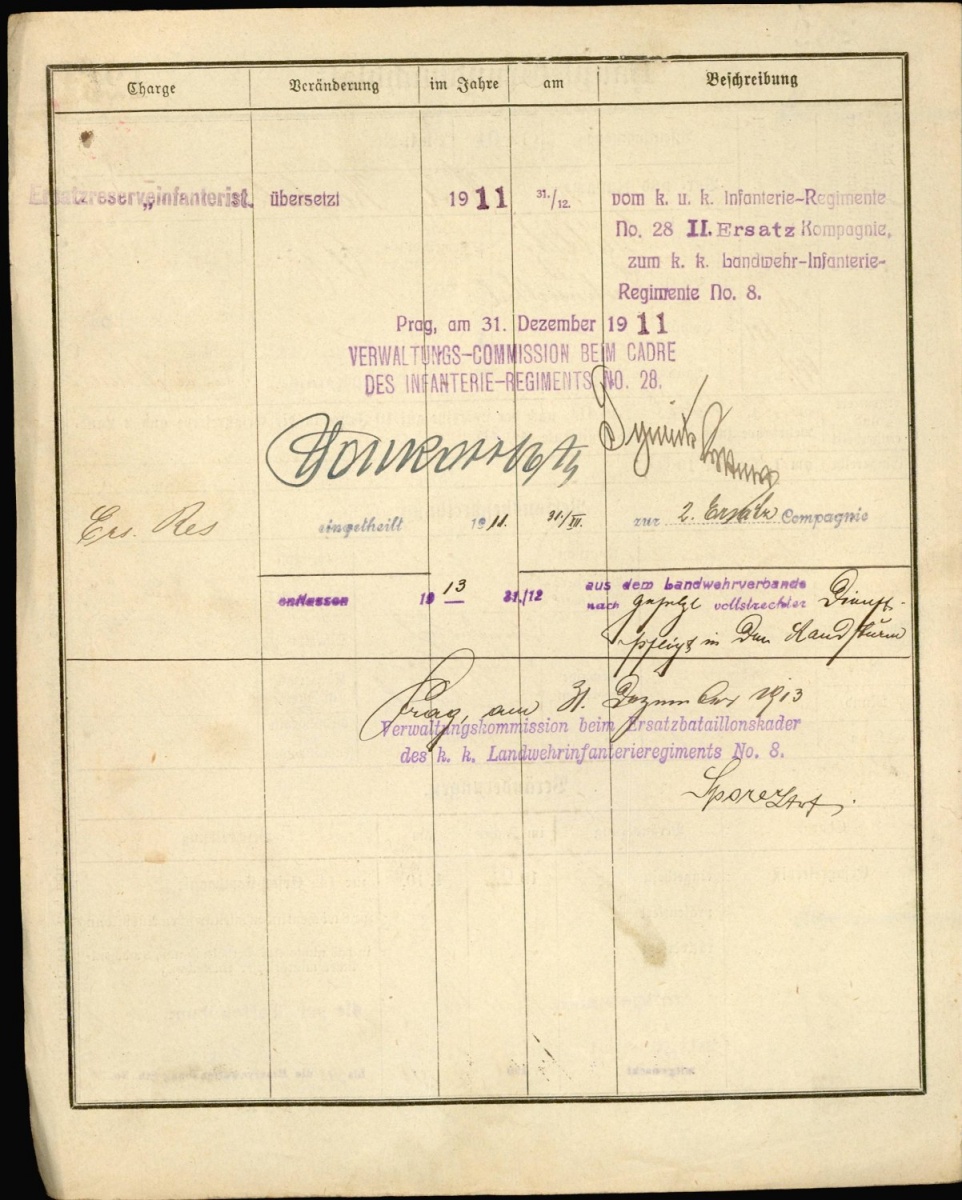 Charge Veränderung im Jahre am Beschreibung
Ersatzreserveinfanterist. übersetzt 1911 31./12. vom k. u. k. Infanterie-Regimente
No. 28 II. Ersatz Kompagnie,
zum k. k. Landwehr-Infanterie-
Regimente No. 8.
Prag, am 31. Dezember 1911
VERWALTUNGS-COMMISSION BEIM CADRE
DES INFANTERIE-REGIMENTS NO. 28.
Ers. Res eingetheilt 1911. 31./XII. zur 2. Ersatz Compagnie
entlassen 1913 31./12 aus dem Landwehrverbande
nach gesetzl vollstreckter Dienst-
pfligt in den Landsturm
Prag, am 31. Dezember 1913
Verwaltungskommission beim Ersatzbataillonskader
des k. k. Landwehrinfanterieregiments No. 8.